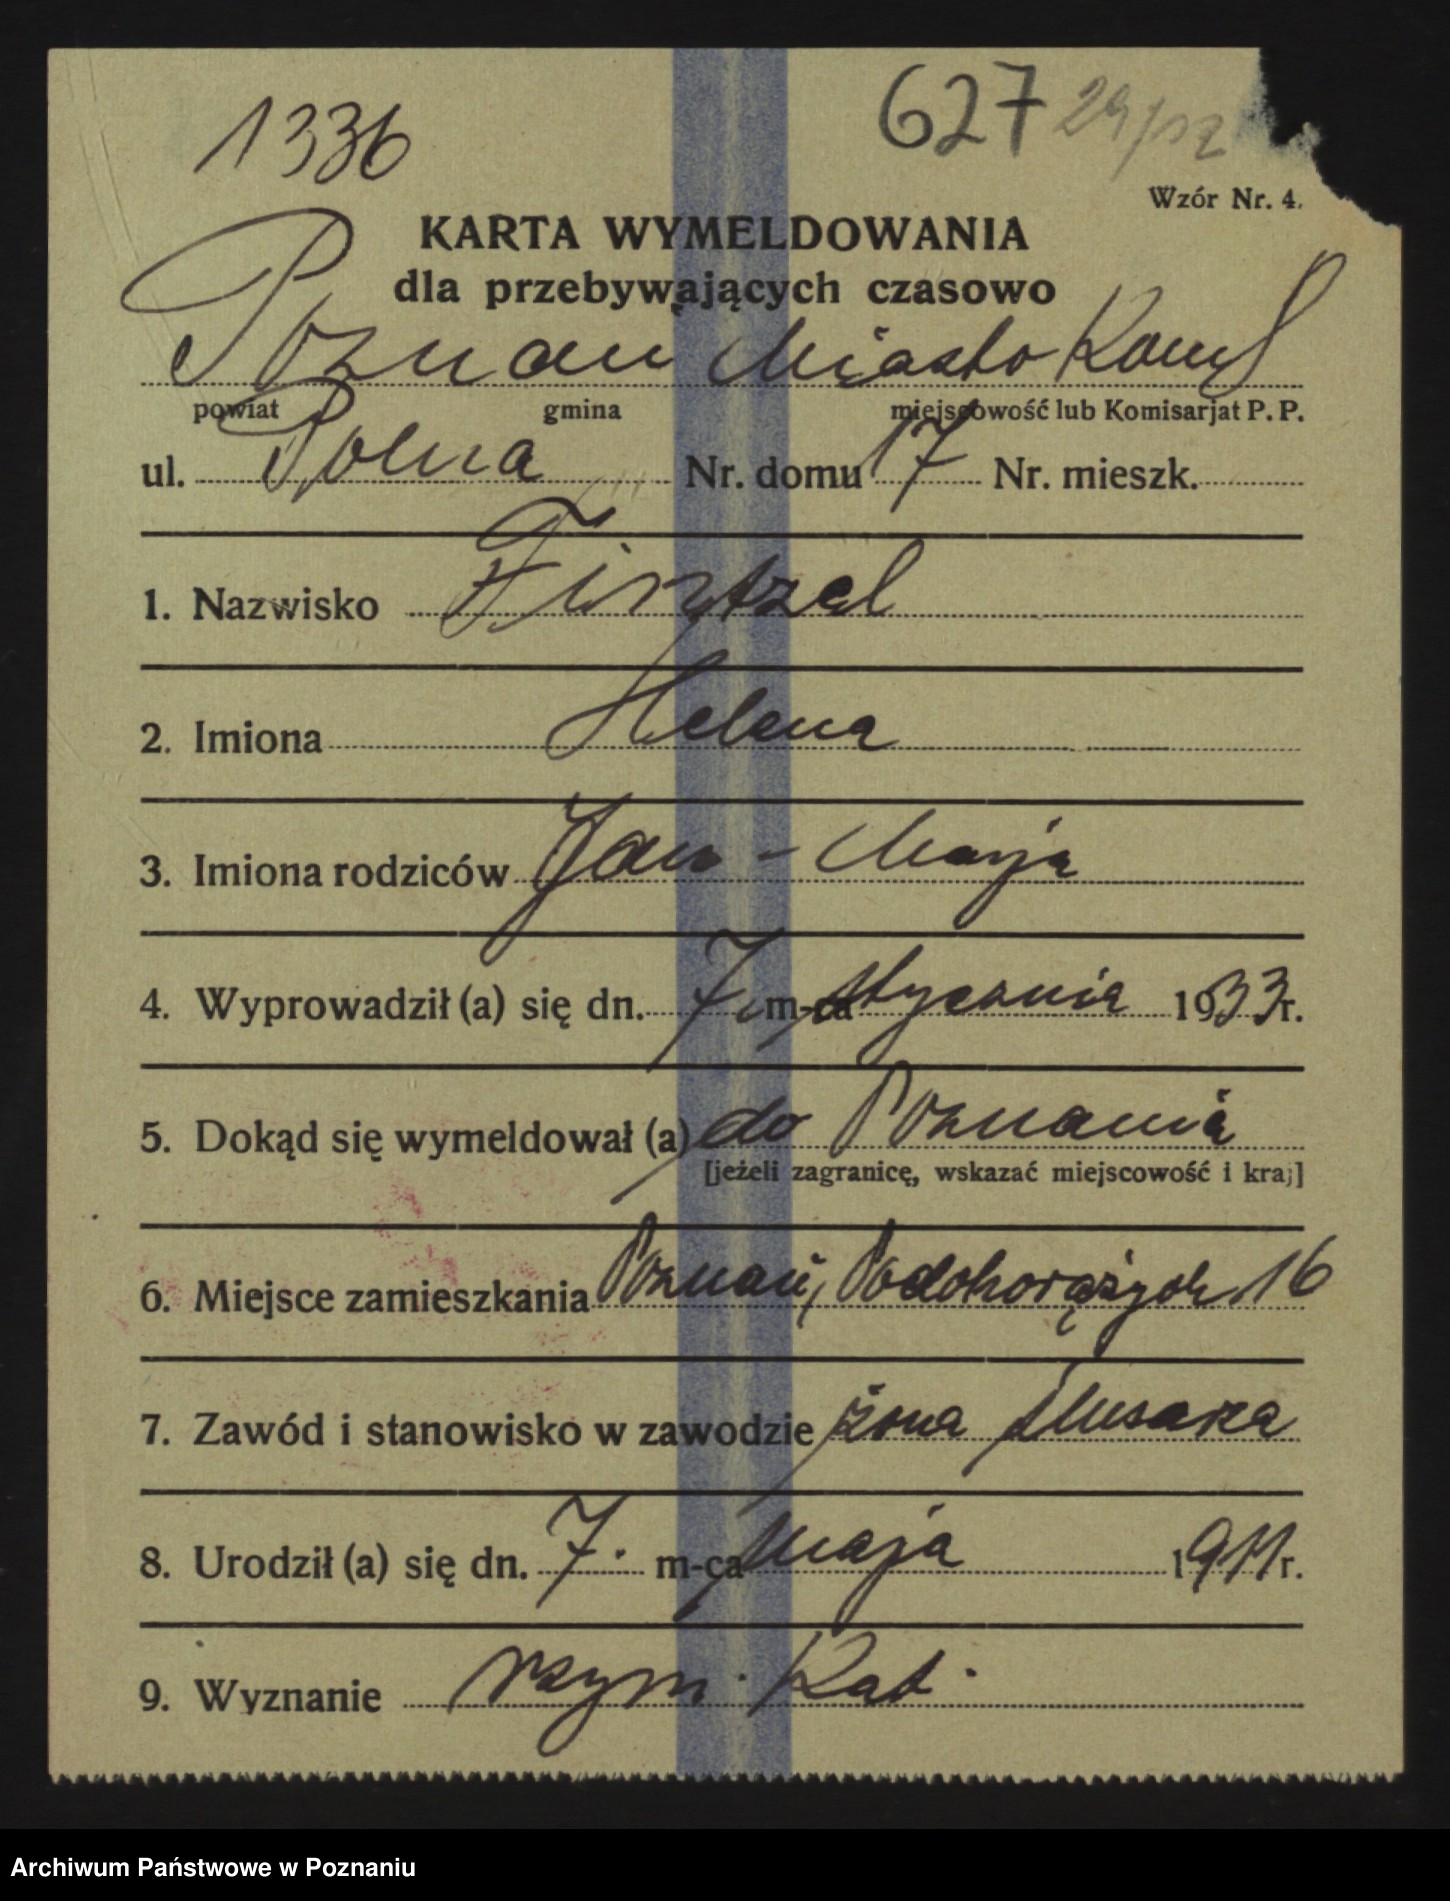 1336
627 29/12
Wzór Nr. 4.
KARTA WYMELDOWANIA
dla przebywających czasowo
Poznań Miasto
powiat gmina miejscowość lub Komisarjat P. P.
ul. Polna Nr. domu 17 Nr. mieszk.
1. Nazwisko
2. Imiona Helena
3. Imiona rodziców Jan - Marja
4. Wyprowadził (a) się dn. 7. m-ca stycznia 1933 r.
5. Dokąd się wymeldował (a) do Poznania
[jeżeli zagranicę, wskazać miejscowość i kraj]
6. Miejsce zamieszkania Poznań, Podchorążych 16
7. Zawód i stanowisko w zawodzie żona ślusarza
8. Urodził (a) się dn. 7. m-ca maja 1911 r.
9. Wyznanie rzym. Kat.
Archiwum Państwowe w Poznaniu